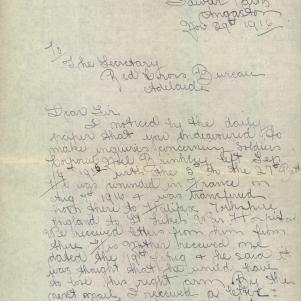 Angaston
Nov 29th 1916
To
The Secretary
Red Cross Bureau
Adelaide
Dear Sir
I noticed by the daily
paper that you endeavoured to
make inquiries concerning soldiers
left Sep
with the 5th to the 27th Batt
It was wounded in France on
Aug 1916 & was transfered
from there to Halifax Yorkshire
England to St Lukes War Hospital
We received letters from him from
there His mother received one
dated the 19th Aug & he said it
was thought that he would have
to lose his right arm, By the
next mail I received a